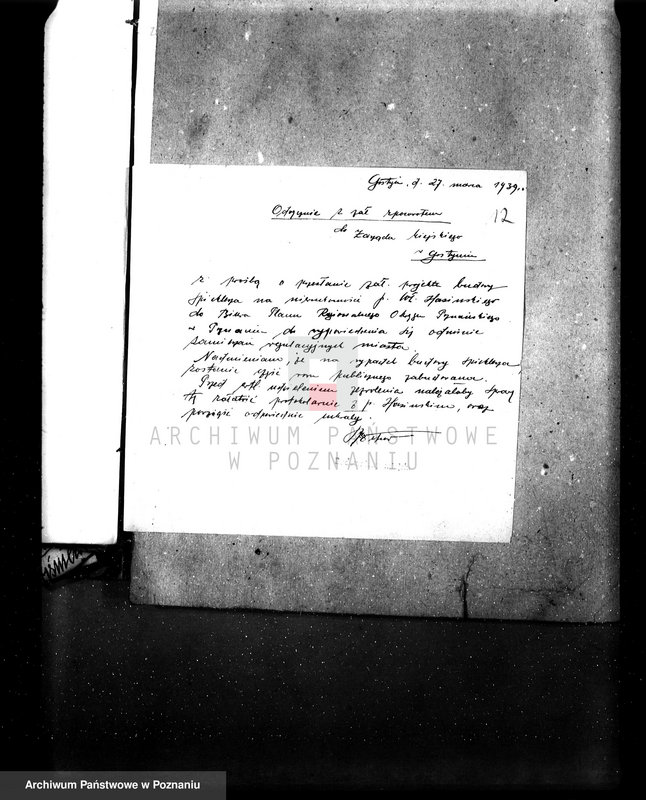 Gostyń, d. 27. marca 1939..
12
Odręcznie z zał. zpowrotem
do Zarządu Miejskiego
w Gostyniu
z prośbą o przesłanie zał. projektu budowy
spichlerza na nieruchomości p. Wł. Hasińskiego
do Biura Planu Regionalnego Okręgu Poznańskiego
w Poznaniu do wypowiedzenia się odnośnie
zamierzeń regulacyjnych miasta.
Nadmieniam, że na wypadek budowy spichlerza,
zostanie część publicznego zabudowana.
Przed udzieleniem zezwolenia należałoby sprawę
tę załatwić protokolarnie z p. Hasińskim, oraz
powziąć odpowiednie uchwały.
ARCHIWUM PAŃSTWOWE
W POZNANIU
Archiwum Państwowe w Poznaniu